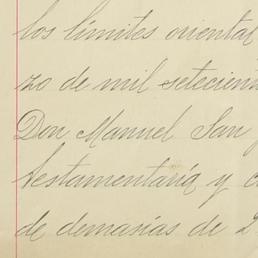 los límites oriental
zo de mil setecien
Don Manuel San
testamentaria y c
de demasías de 2